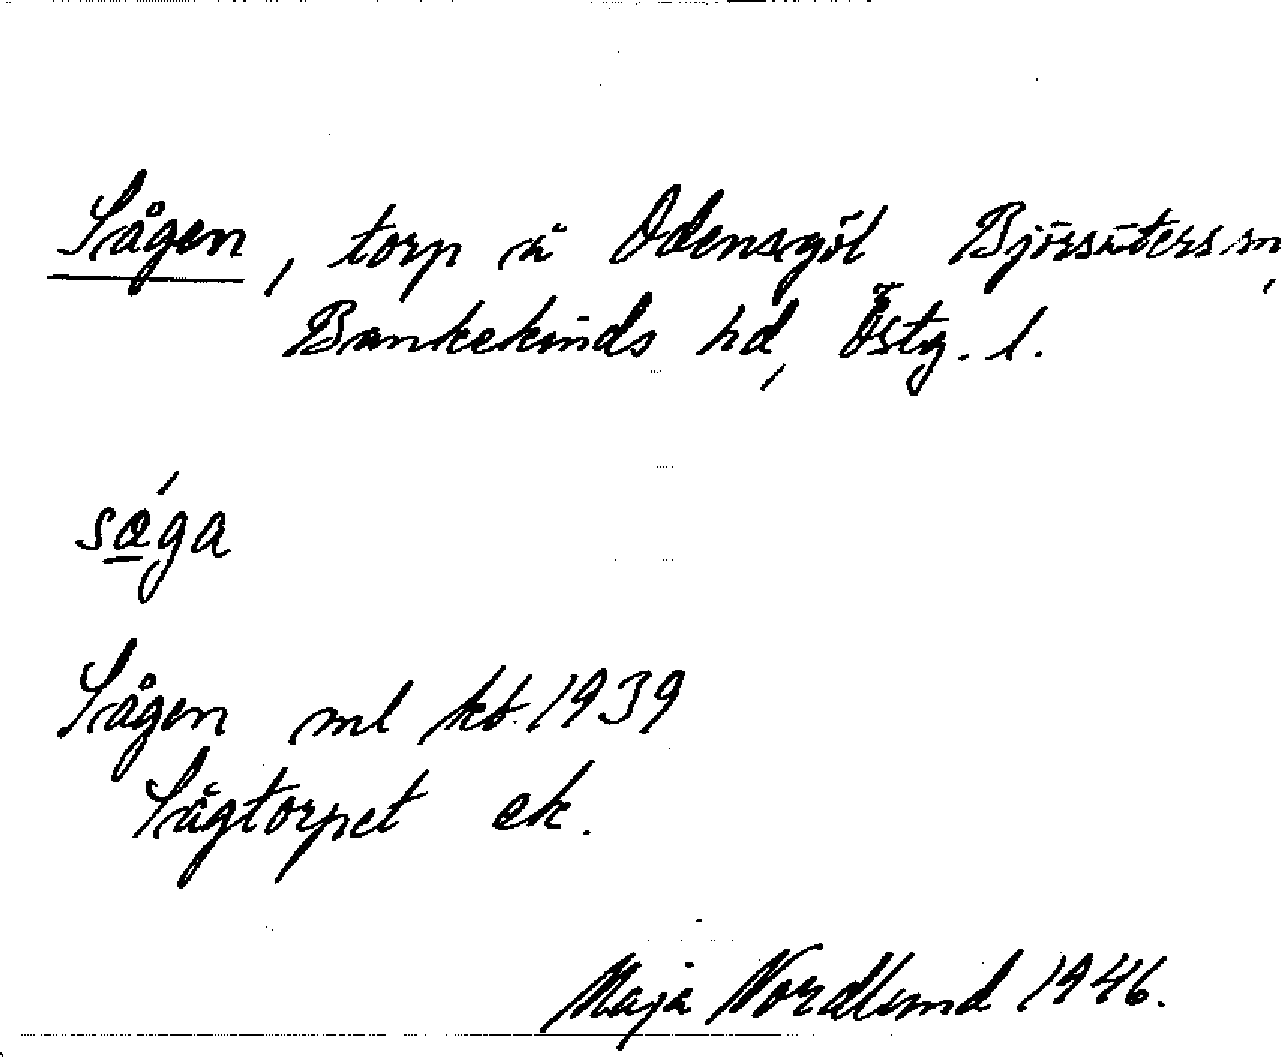 Sågen, torp å Odensgöl Björsäters sn,
Bankekinds hd, Östg. l.
sǻga
Sågen ml kb. 1939
Sågtorpet ek.
Maja Nordlund 1946.